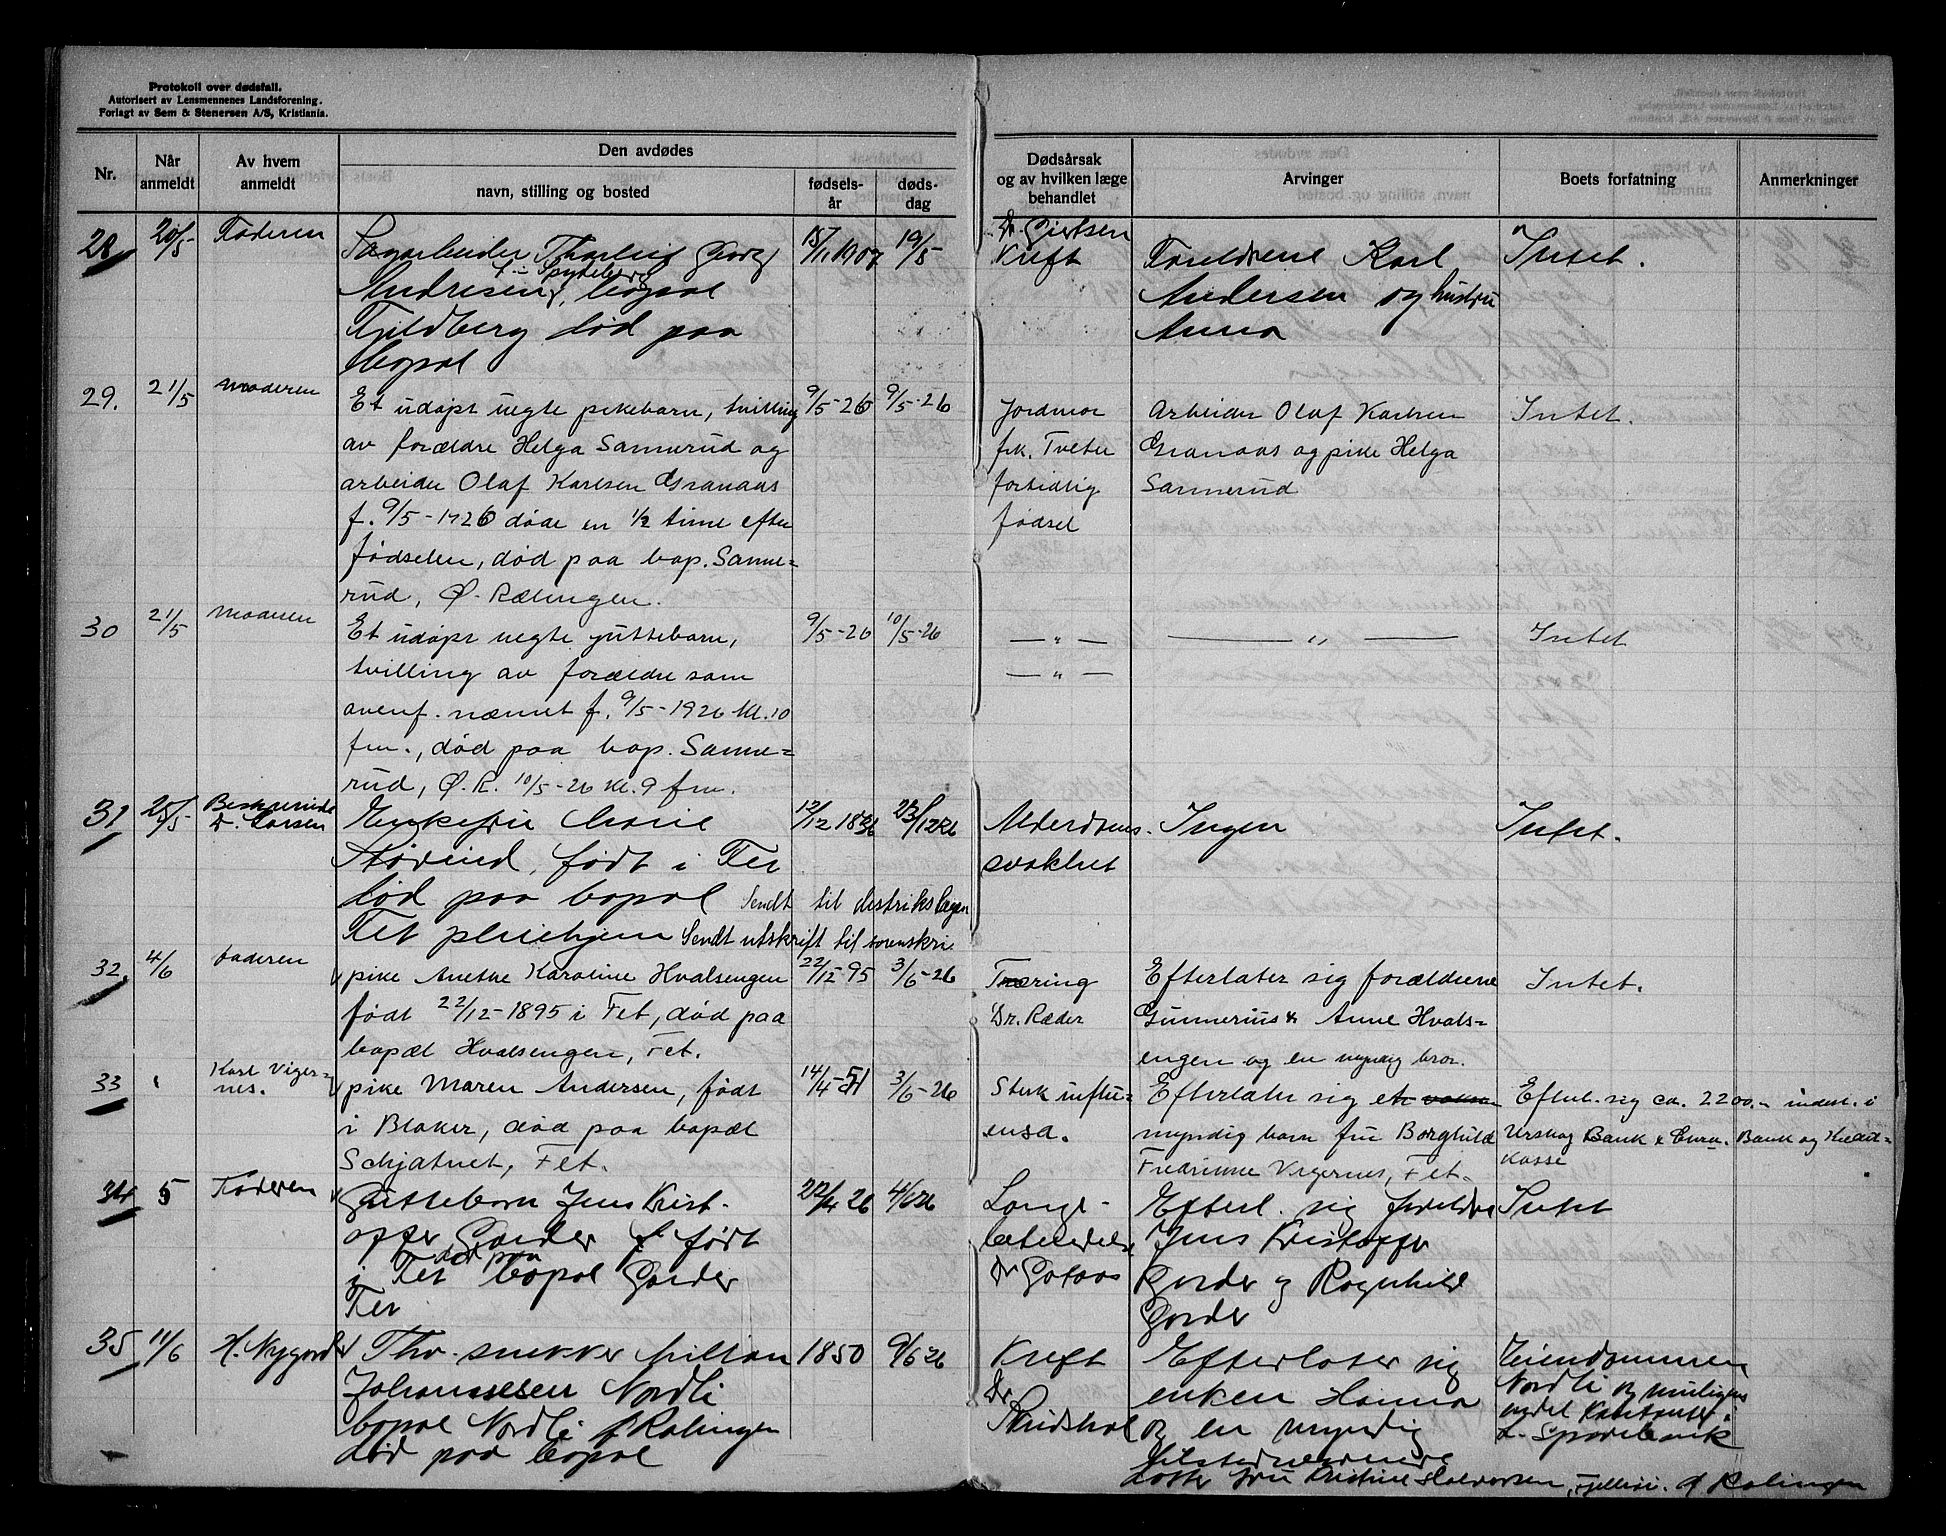 Protokoll over dødsfall.
Autorisert av Lensmennenes Landsforening.
Forlagt av Sem & Stenersen A/S, Kristiania.
Nr.
Når anmeldt
Av hvem anmeldt
Den avdødes
navn, stilling og bosted
fødselsår
dødsdag
Dødsårsak og av hvilken læge behandlet
Arvinger
Boets forfatning
Anmerkninger
28 20/5 Faderen
Georg 15/1 1907 19/5
f. i Spydeberg
Andresen, bopæl
Fjeldberg død paa
bopæl
Dr. Giertsen
Kreft
Foreldrene Karl
Andersen og hustru
Anna
Intet.
29. 21/5 Moderen
Et udøpt uegte pikebarn, tvilling 9/5-26 9/5-26
av forældre Helga Sannerud og
arbeider Olaf Karlsen Granaas
f. 9/5-1926 døde en 1/2 time efter
fødselen, død paa bop. Sanne=
rud, Ø. Rælingen.
Jordmor
frk. Tveter
fortidlig
fødsel
Arbeider Olaf Karlsen
Granaas og pike Helga
Sannerud
Intet.
30 21/5 Moderen
Et udøpt uegte guttebarn, 9/5-26 10/5-26
tvilling av forældre som
ovenf. nævnt f. 9/5-1926 kl. 10
fm., død paa bop. Sanne=
rud, Ø.R. 10/5-26 kl. 9 fm.
— " —
— " —
— " —
Intet
31 25/5 D. Larsen
Enkefru
født i Fet
død paa bopæl Sendt til distriktslægen
Fet pleiehjem Sendt utskrift til sorenskri
Alderdoms-
svakhet
Ingen
Intet.
32. 4/6 Faderen
pike Anette Karoline Hvalsengen 22/12-95 3/6-26
født 22/12-1895 i Fet, død paa
bopæl Hvalsengen, Fet.
Tæring
Dr. Ræder
Efterlater sig forældrene
Gunnerius & Anne Hvals=
engen og en myndig bror.
Intet.
33 Karl Viger=
nes.
pike Maren Andersen, født 14/4-51 3/6-26
i Blaker, død paa bopæl
Schjatvet, Fet.
Sterk influ=
ensa.
Efterlater sig
myndig barn fru Borghild
Fredrinne Vigernes, Fet.
Efterl. sig ca. 2200.- indest. i
Urskog Bank & Bank og
Kasse
34 5 Faderen
Guttebarn Jens Krist-
offer Garder født 4/6 26
død paa
i Fet bopæl Garder
Fet
Lunge-
betendelse
Dr Gotaas
Efterl. sig foreldre
Jens Kristoffer
Garder og Ragnhild
Garder
Intet
35 11/6 H. Nygard
Thv. snekker 1850 9/6 26
Johannesen Nordli
bopæl Nordli f. Rælingen
død paa bopæl
Kreft
Dr
Efterlater sig
enken Hanna
og en myndig
tilstedeværende
datter fru Kristine Halvorsen, i Rælingen
Eiendommen
Nordli og muligens
Sparebank